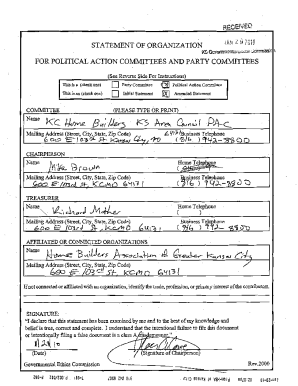 RECEIVED
JAN 29 2010
STATEMENT OF ORGANIZATION
KS Governmental Ethics Commission
FOR POLITICAL ACTION COMMITTEES AND PARTY COMMITTEES
(See Reverse Side For Instructions)
This is a (check one) Party Committee Political Action Committee
This is an (check one) Initial Statement Amended Statement
COMMITTEE (PLEASE TYPE OR PRINT)
Name KC Home Builders KS Area Council PAC
Mailing Address (Street, City, State, Zip Code) 64131 Business Telephone
600 E 103rd St Kansas City, MO (816) 942-8800
CHAIRPERSON
Name Mike Brown Home Telephone
Mailing Address (Street, City, State, Zip Code) Business Telephone
600 E 103rd St, KCMO 64131 (816) 942-8800
TREASURER
Name Richard Mather Home Telephone
( )
Mailing Address (Street, City, State, Zip Code) Business Telephone
600 E 103rd St, KCMO 64131 (816) 942-8800
AFFILIATED OR CONNECTED ORGANIZATIONS
Name Home Builders Association of Greater Kansas City
Mailing Address (Street, City, State, Zip Code)
600 E 103rd St. KCMO 64131
If not connected or affiliated with an organization, identify the trade, profession, or primary interest of the contributors.
SIGNATURE:
"I declare that this statement has been examined by me and to the best of my knowledge and
belief is true, correct and complete. I understand that the intentional failure to file this document
or intentionally filing a false document is a class A misdemeanor."
(Date) (Signature of Chairperson)
Governmental Ethics Commission Rev.2000